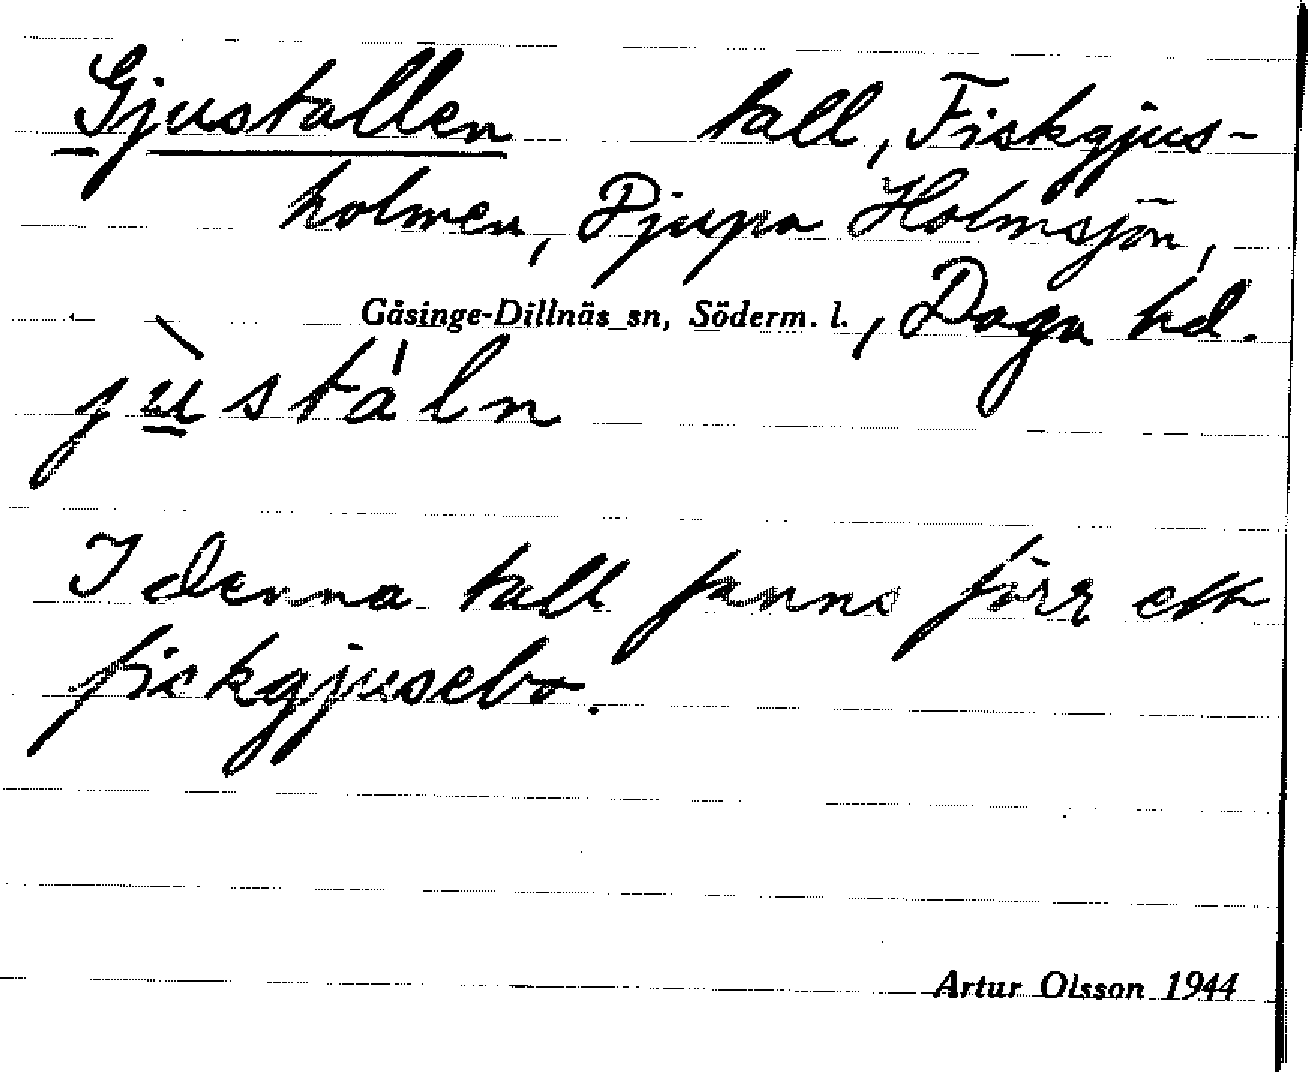 Gjustallen tall, Fiskgjus-
holmen, Djupa Holmsjön,
Gåsinge-Dillnäs sn, Söderm. l., Daga hd.
jùstáln
I denna tall fanns förr ett
fiskgjusebo.
Artur Olsson 1944